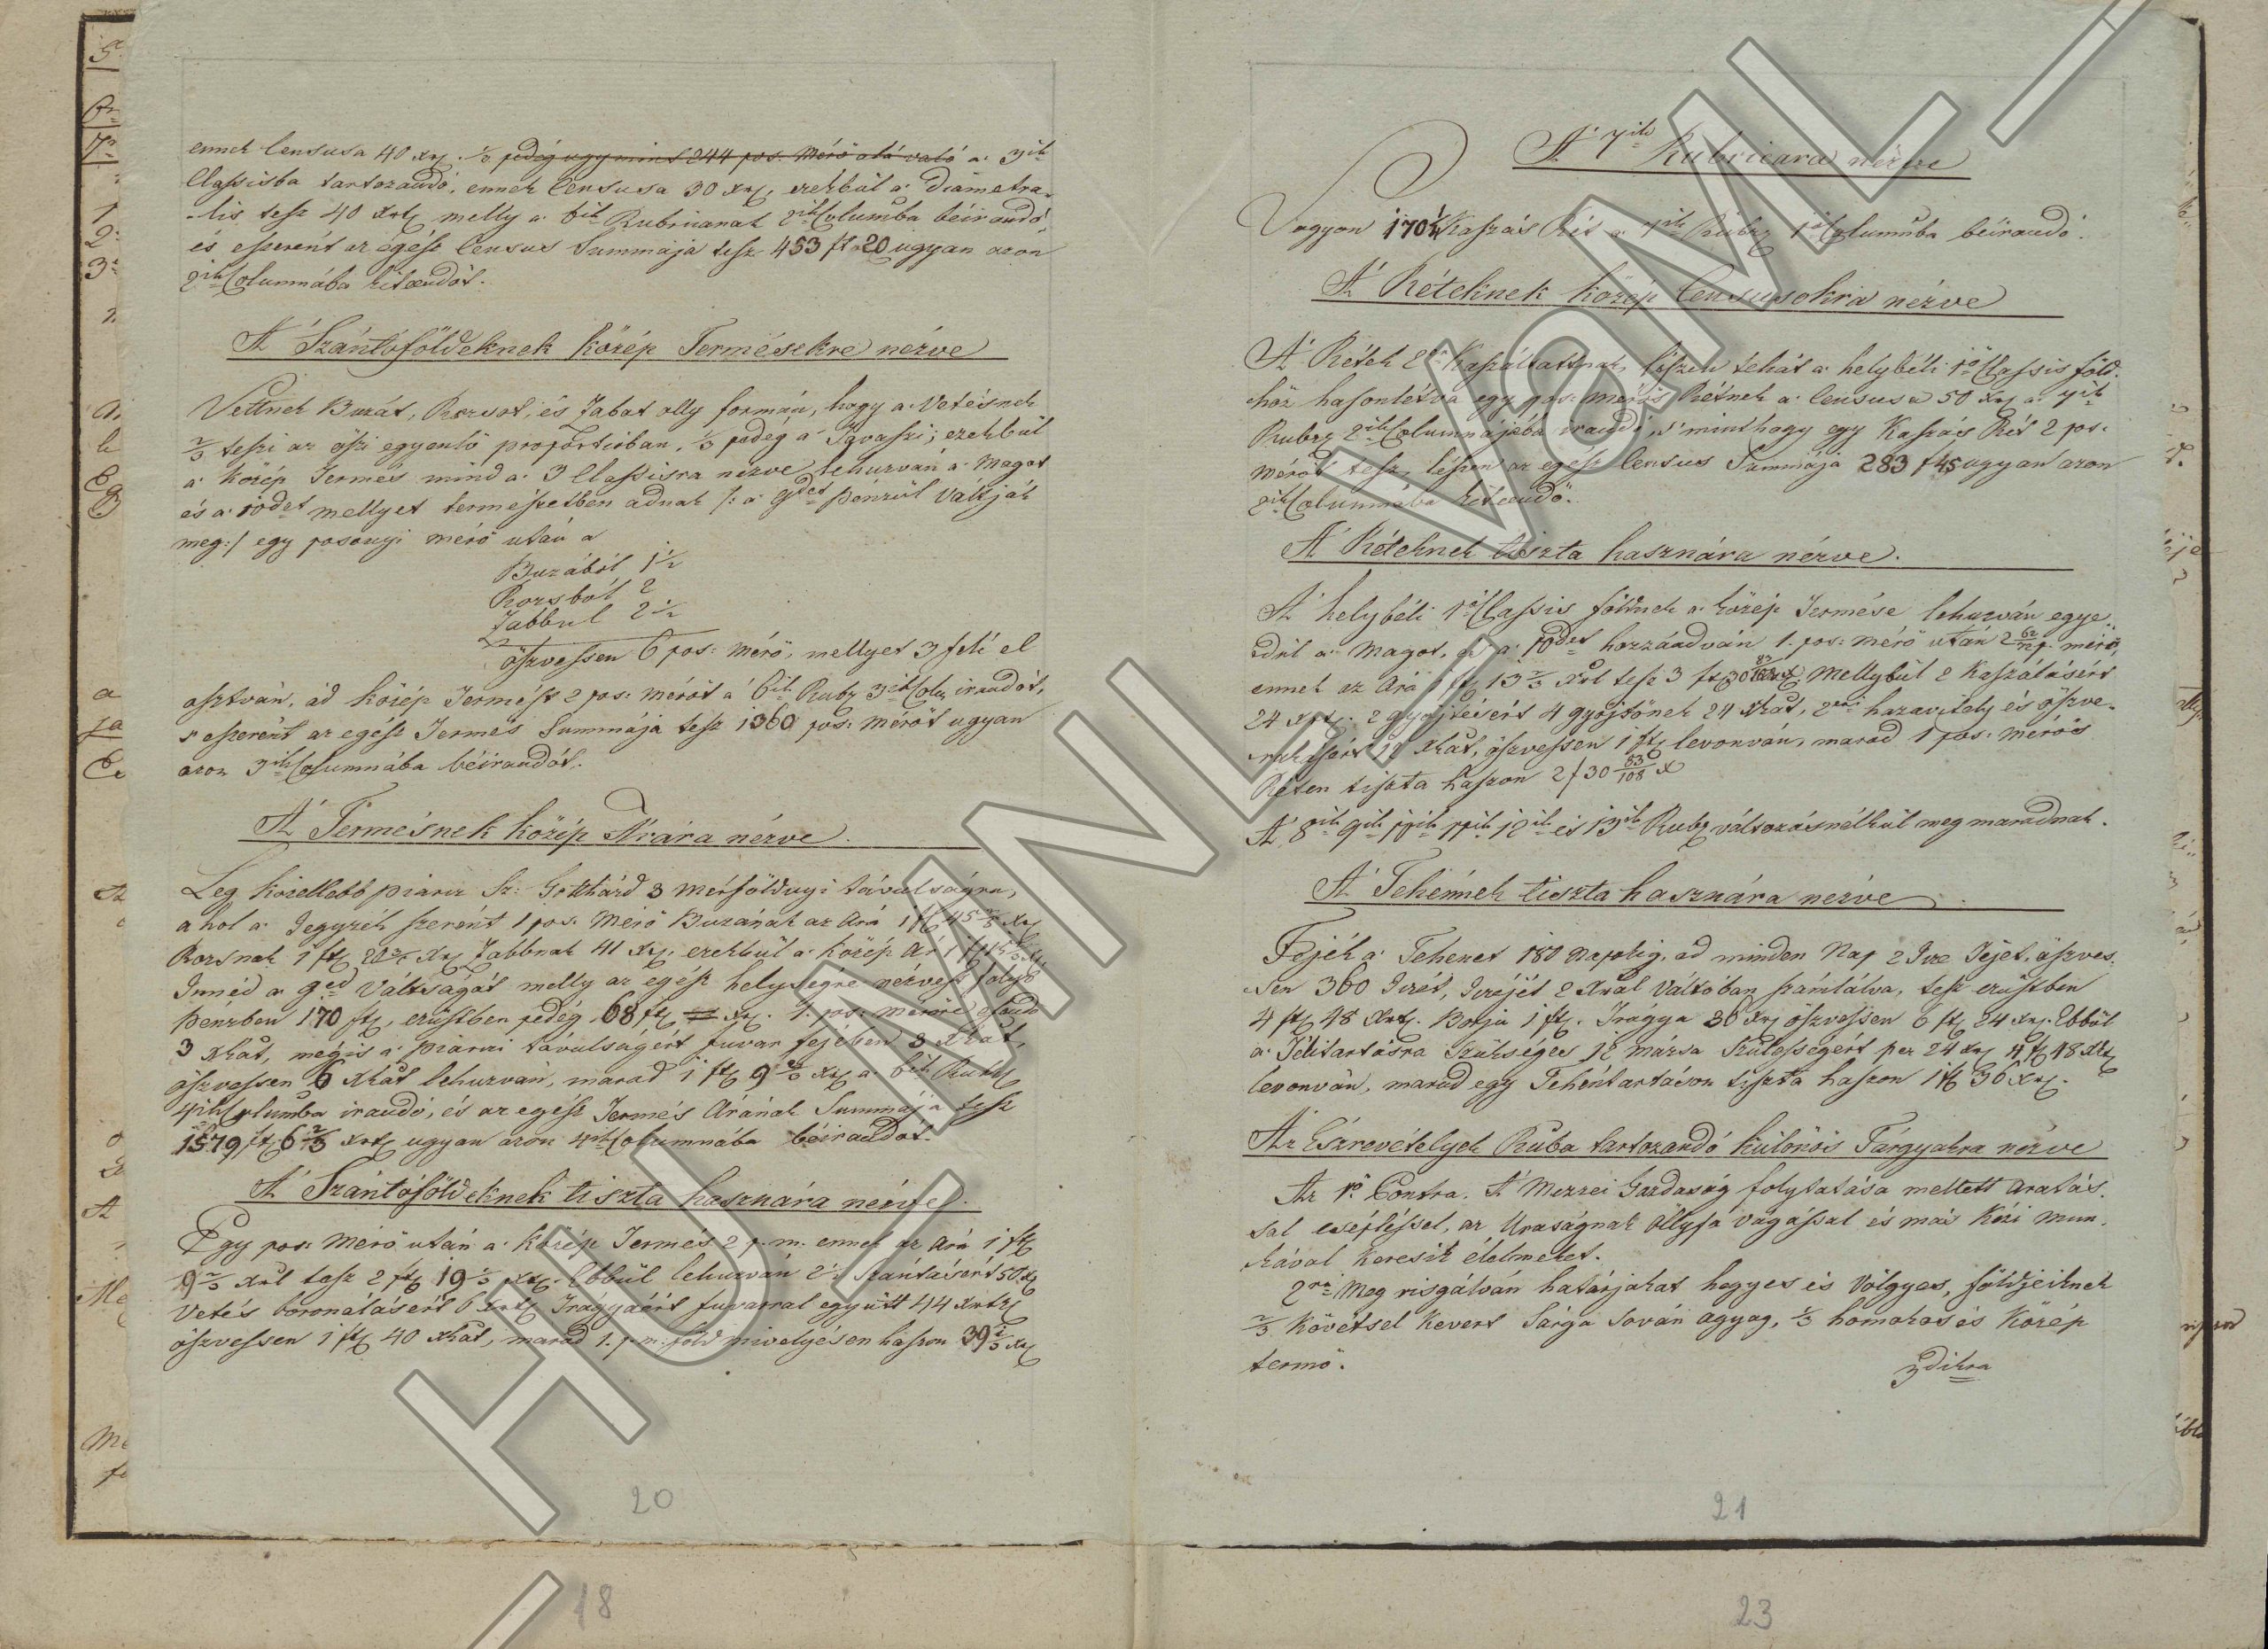 ennek Censusa 40 xrj. ⅓ pedég ugymint 244 pos. Mérö alá való a: 3ik
Classisba tartozandó, ennek Censusa 30 xrj, ezekbül a: Diametra-
-lis tesz 40 xrtj melly a: 6ik Rubricanak 2ik Columba béirandó
és eszerént az egész Census Summája tesz 453 ft 20 ugyan azon
2ik Columnába kiteendöt.
A' Szántóföldeknek közép Termésekre nézve
Vettnek Buzát, Rozsot, és Zabat olly formán, hogy a: Vetésnek
⅔ teszi az öszi egyenlö proportioban, ⅓ pedég a' Tavaszi; ezekbül
a: közép Termés mind a: 3 Classisra nézve lehuzván a: Magot
és a: 10det mellyet termeszetben adnak /: a: 9det pénzül váltják
meg:/ egy posonyi mérö után a
Buzából 1½
Rozsból 2
Zabbul 2½
öszvessen 6 pos: Mérö, mellyet 3 felé el
osztván, ád közép Termést 2 pos: Méröt a' 6ik Rubr 3ik Col irandót,
s' eszerént az egész Termés Summája tesz 1360 pos: Méröt ugyan
azon 3ik Columnába béirandót.
A' Termésnek közép Árára nézve.
Leg közellebb piacz Sz: Gotthárd 3 Mérföldnyi távulságra,
ahol a: Jegyzék szerént 1 pos: Merö Buzának az Ará 1 ft 45 ⅔ xrj
Rozsnak 1 ft xrj Zabbnak 41 xrj, ezekbül a: közép Ár 1 ft 15 ⅔ xrj
Innéd a: 9ed Váltságát melly az egész helységre nézvést folyó
penzben 170 ftj, ezüstben pedég 68 ftj xrj. 1. pos: meröre esendö
3 xkat, mégis a: piaczi távulságért fuvar fejében 3 xkat,
öszvessen 6 xkat lehuzván, marad 1 ftj 9 ⅔ xrj a: 6ik Rubr
4ik Columba irandó, és az egész Termés Árának Summája tesz
1579 ft 6 ⅔ xrtj ugyan azon 4ik Columnába béirandót.
A' Szántóföldeknek tiszta hasznára nézve.
Egy pos: Mérö után a: közép Termés 2 p. m. ennek az Ará 1 ftj
9 ⅔ xrul tesz 2 ftj 19 ⅓ xrj. Ebbül lehuzván 2ri Szántásért 50 xj
Vetés boronálásért 6 xrtj Trágyáért fuvarral együtt 44 xrtj
öszvessen 1 ftj 40 xkat, marad 1. p. m: föld mivelyésen haszon 39 ⅓ xrj
20
18
A' 7ik Rubricara nézve
Vagyon 170¼ Kaszás Rét a: 7ik Rubr 1ö Columnba béirandó.
A' Réteknek közép Censusokra nézve
A' Rétek 2er Kaszáltattnak, lészen tehát a: helybéli 1ö Classis föld-
höz hasonlétva egy pos: merös Rétnek a: Censusa 50 xrj a: 7ik
Rubrj 2ik Columnájába irandó, s' mint hogy egy Kaszás Rét 2 pos:
Méröt tesz, lészen az egész Census Summája 283 f 45 ugyan azon
2ik Columnába kiteendö.
A' Réteknek tiszta hasznára nézve.
A' helybéli 1ö Classis földnek a: közép Termése lehuzván egye-
dül a: Magot, és a: 10det hozzáadván 1. pos: mérö után 2 p. mérö,
ennek az Ará 1 ftj 15 ⅔ xrul tesz 3 ft 30 83/108 xj Mellybül 2 Kaszálásért
24 xrtj. 2 gyöjtésért 4 gyöjtönek 24 xkat, 2ri hazavitely és öszve-
rakásért 12 xkat, öszvessen 1 ftj levonván, marad 1 pos: mérös
Réten tiszta haszon 2 f 30 83/108 x
A' 8ik 9ik 10ik 11ik 12ik és 13ik Rubr változás nélkül megmaradnak.
A' Tehénnek tiszta hasznára nézve.
Fejék a: Tehenet 180 Napokig, ad minden Nap 2 Icze Tejet, öszves-
sen 360 Iczét, Iczéjét 2 xrul Váltóban számlálva, tesz ezüstben
4 ftj 48 xrtj. Borju 1 ftj. Tragya 36 xrj öszvessen 6 ftj 24 xrj. Ebböl
a: Télitartásra szükséges 12 mázsa Szülességért per 24 xrj 4 ft 48 xrtj
levonván, marad egy Tehéntartáson tiszta haszon 1 ft 36 xrj.
Az Észrevételyek Rubr tartozandó különös Tárgyakra nézve
Az 1ö Contra. A' Mezzei Gazdaság folytatása mellett Aratás-
sal csépléssel, az Uraságnak Öllyfa vágással és más Kézi mun-
kával Keresik élelmeket.
2ra Meg visgálván határjokat hegyes és Völgyes, földjeiknek
⅔ Kövétsel kevert Sárga Sován agyag, ⅓ homokos és Közép
termö.
3dikra
21
23